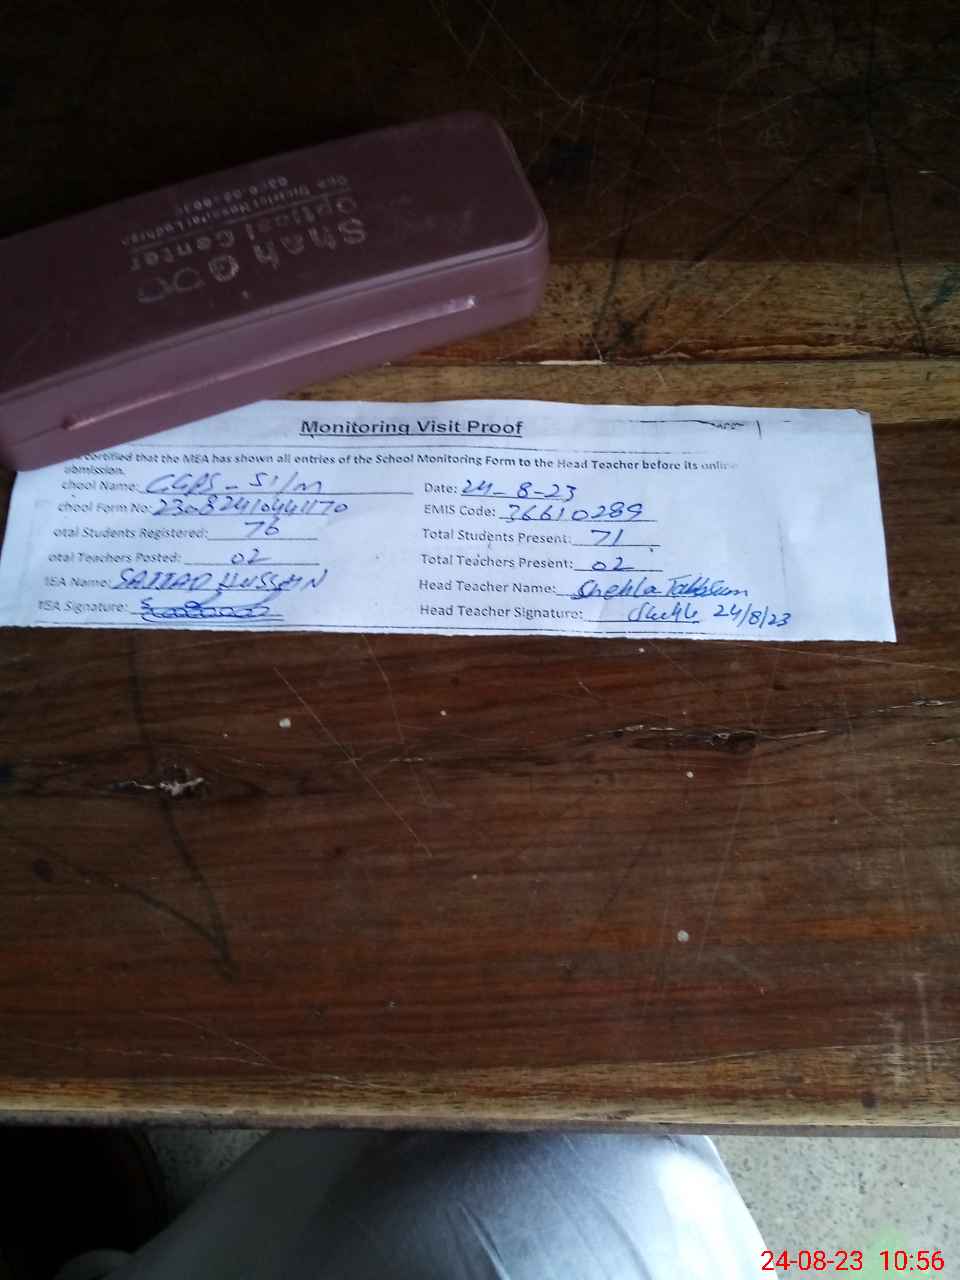 Shah G
Optical Center
Opp. District Hospital Lodhran
Monitoring Visit Proof
certified that the MEA has shown all entries of the School Monitoring Form to the Head Teacher before its online
ubmission.
chool Name: GGPS - 51/m
Date: 24-8-23
chool Form No: 23082410441170
EMIS Code: 36610289
otal Students Registered: 76
Total Students Present: 71
otal Teachers Posted: 02
Total Teachers Present: 02
MEA Name: SAJJAD HUSSAIN
Head Teacher Name: Shehla Tabbsum
MEA Signature:
Head Teacher Signature: Shehla 24/8/23
24-08-23 10:56